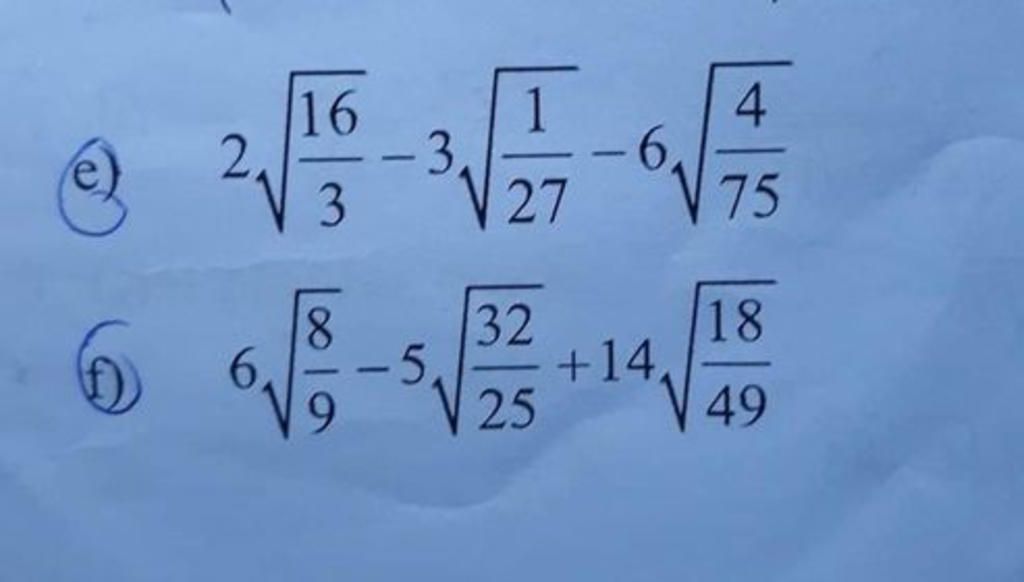 e) 2√(16/3) − 3√(1/27) − 6√(4/75)
f) 6√(8/9) − 5√(32/25) + 14√(18/49)